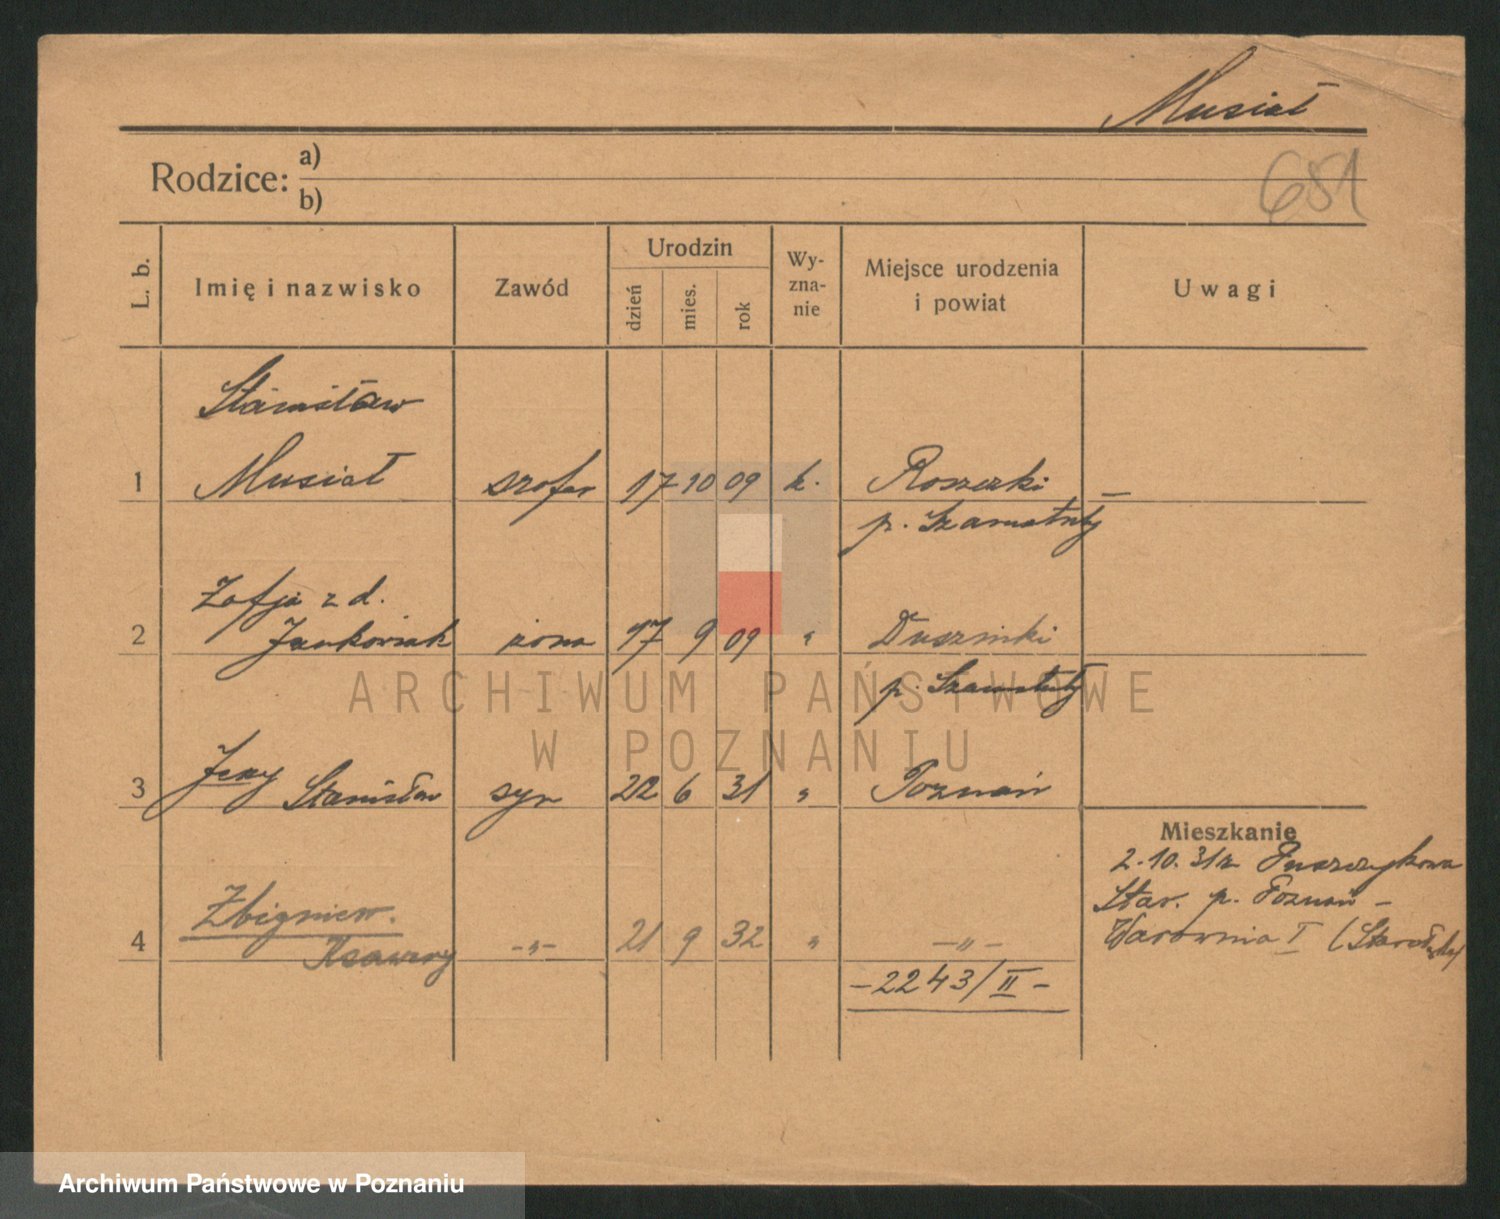 Musiał
Rodzice: a)
b)
681
L. b.
Imię i nazwisko
Zawód
Urodzin
dzień
mies.
rok
Wy-
zna-
nie
Miejsce urodzenia
i powiat
Uwagi
Stanisław
1 Musiał szofer 17 10 09 k. Roszczki
p. Szamotuły
Zofja z d.
2 Jankowiak żona 17 9 09 " Duszniki
p. Szamotuły
3 Jerzy Stanisław syn 22 6 31 " Poznań
Mieszkanie
2.10.31r Puszczykowa
Star. p. Poznań -
Warownia I (Starołęka)
Zbigniew.
4 Ksawery -"- 21 9 32 " -"-
-2243/II-
ARCHIWUM PAŃSTWOWE
W POZNANIU
Archiwum Państwowe w Poznaniu